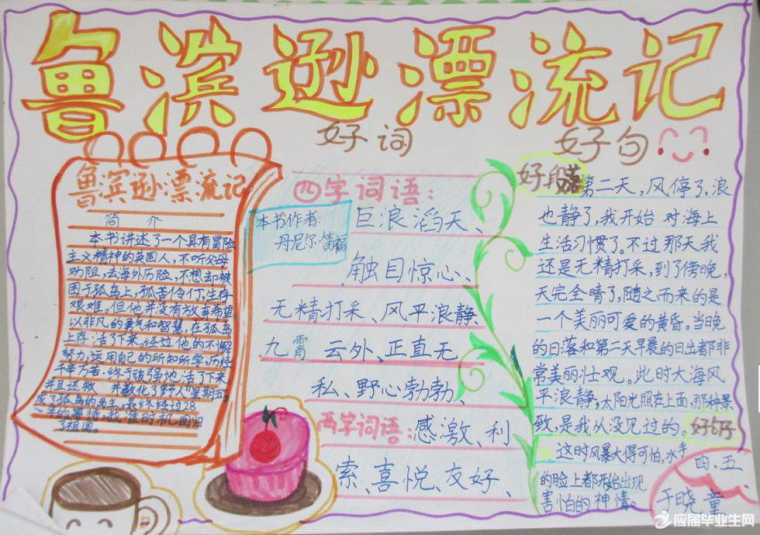 鲁滨逊漂流记
好词
好句
鲁滨逊漂流记
简介
本书讲述了一个具有冒险
主义精神的英国人,不听父母
劝阻,去海外历险,不想却被
困于孤岛上,孤苦伶仃,生存
艰难,但他并没有放弃希望
以非凡的勇气和智慧,在孤岛
上存活了下来,经过他的不懈
努力,运用自己的所知所学,历经
千辛万苦,终于顽强地活了下来
四字词语:
本书作者:
丹尼尔·笛福
巨浪滔天、
触目惊心、
无精打采、风平浪静
九霄云外、正直无
私、野心勃勃、
两字词语:感激、利
索、喜悦、友好、
好段落
第二天,风停了,浪
也静了,我开始对海上
生活习惯了。不过那天我
还是无精打采,到了傍晚,
天完全晴了,随之而来的是
一个美丽可爱的黄昏。当晚
的日落和第二天早晨的日出都非
常美丽壮观。此时大海风
平浪静,太阳光照在上面,那种景
致,是我从没见过的。好句子
这时风暴大得可怕,水手
的脸上都开始出现
害怕的神情。
四、五
于晓童
应届毕业生网